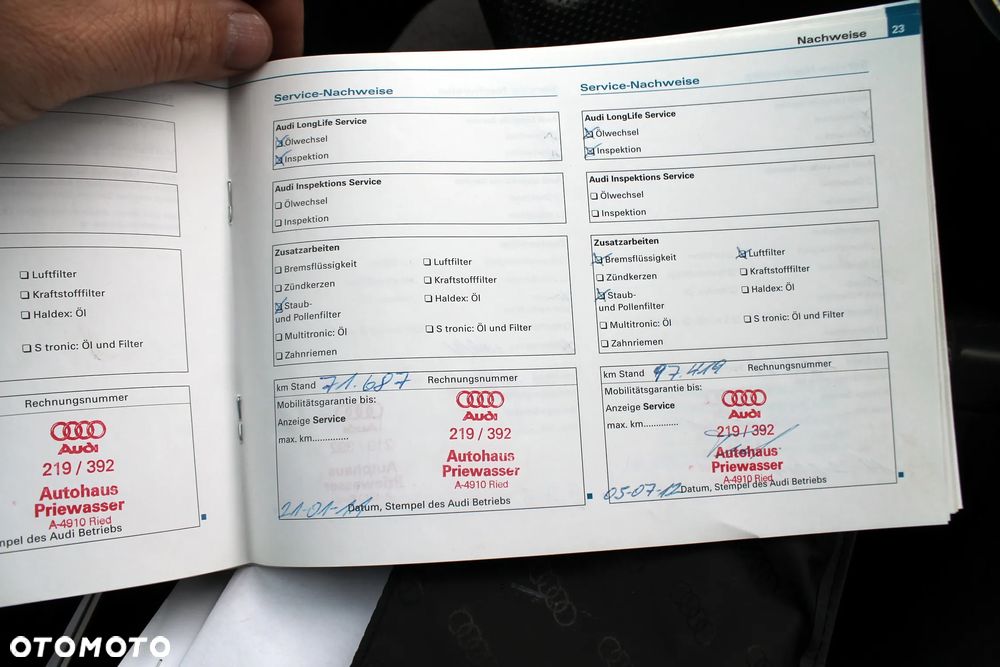 Nachweise 23
Luftfilter
Kraftstofffilter
Haldex: Öl
S tronic: Öl und Filter
Rechnungsnummer
Audi
219 / 392
Autohaus
Priewasser
A-4910 Ried
mpel des Audi Betriebs
Service-Nachweise
Audi LongLife Service
Ölwechsel
Inspektion
Audi Inspektions Service
Ölwechsel
Inspektion
Zusatzarbeiten
Bremsflüssigkeit Luftfilter
Zündkerzen Kraftstofffilter
Staub- Haldex: Öl
und Pollenfilter
Multitronic: Öl S tronic: Öl und Filter
Zahnriemen
km Stand 71.687 Rechnungsnummer
Mobilitätsgarantie bis:
Anzeige Service
max. km..............
Audi
219 / 392
Autohaus
Priewasser
A-4910 Ried
21-01-11 Datum, Stempel des Audi Betriebs
Service-Nachweise
Audi LongLife Service
Ölwechsel
Inspektion
Audi Inspektions Service
Ölwechsel
Inspektion
Zusatzarbeiten
Bremsflüssigkeit Luftfilter
Zündkerzen Kraftstofffilter
Staub- Haldex: Öl
und Pollenfilter
Multitronic: Öl S tronic: Öl und Filter
Zahnriemen
km Stand 97.419 Rechnungsnummer
Mobilitätsgarantie bis:
Anzeige Service
max. km..............
Audi
219 / 392
Autohaus
Priewasser
A-4910 Ried
05-07-12 Datum, Stempel des Audi Betriebs
OTOMOTO